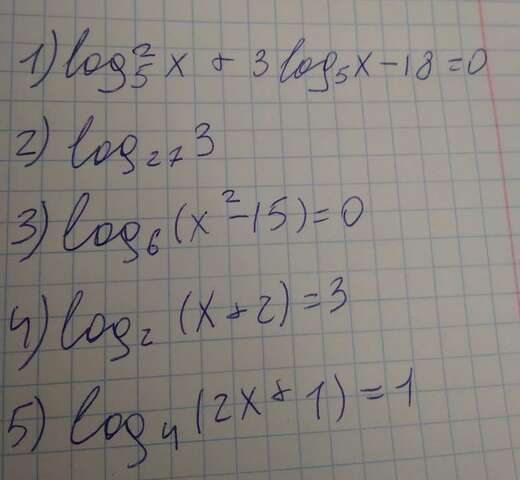 1) log₅²x + 3log₅x-18=0
2) log₂₇3
3) log₆(x²-15)=0
4) log₂(x+2)=3
5) log₄(2x+1)=1